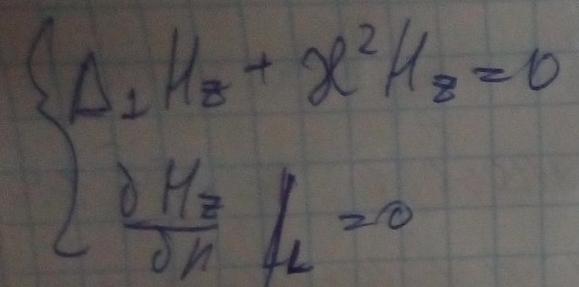 Δ⊥Hz + ϰ²Hz = 0
∂Hz/∂n |L = 0